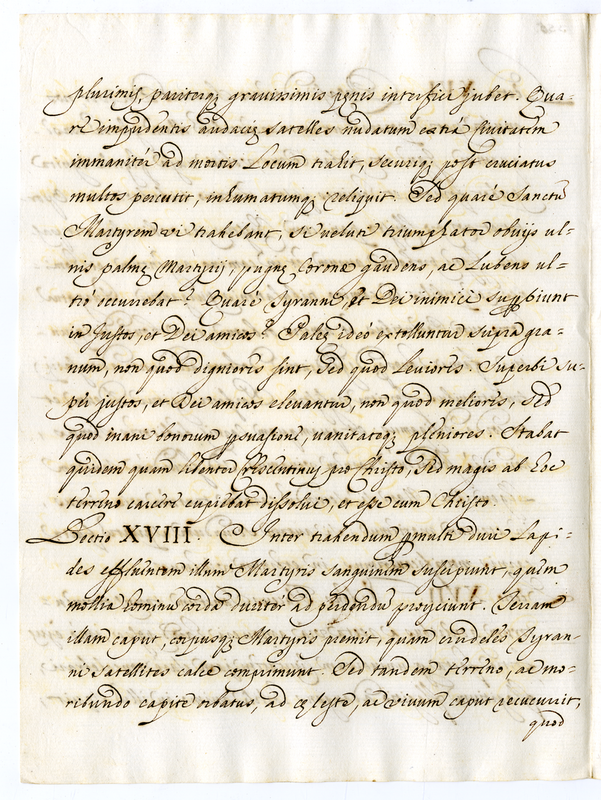 plurimis, pariterq; gravissimis pęnis interfici jubet. Qua-
re impudentis audacię satelles nudatum extrá Civitatem
immanitér ad mortis Locum trahit, securiq; post cruciatus
multos percutit, inhumatumq; reliquit. Sed quaré Sanctū
Martyrem vi trahebant, si veluti triumphator obvijs ul-
nis palmę Martyrij, pugnę Coronę gaudens, ac Lubens ul-
tró occurrebat? Quaré Tyranni, et Dei inimici superbiunt
in Justos, et Dei amicos? Paleę ideó extolluntur supra gra-
num, non quod digniores sint, sed quod Leviores. Superbi su-
per justos, et Dei amicos elevantur, non quod meliores, sed
quod inani bonorum psuasione, vanitateq; pleniores. Stabat
quidem quam libenter Crescentinus pro Christo, sed magis ab hoc
terreno carcere cupiebat dissolvi, et esse cum Christo.
Lectio XVIII Inter trahendum pmulti duri Lapi-
des effluentem illum Martyris sanguinem suscipiunt, quem
mollia hominū corda duriter ad perdendū proijciunt. Terram
illam caput, corpusq; Martyris premit, quam crudeles Tyran-
ni satellites calce comprimunt. Sed tandem terreno, ac mo-
ribundo capite orbatus, ad cęleste, ac vivum caput recucurrit,
quod